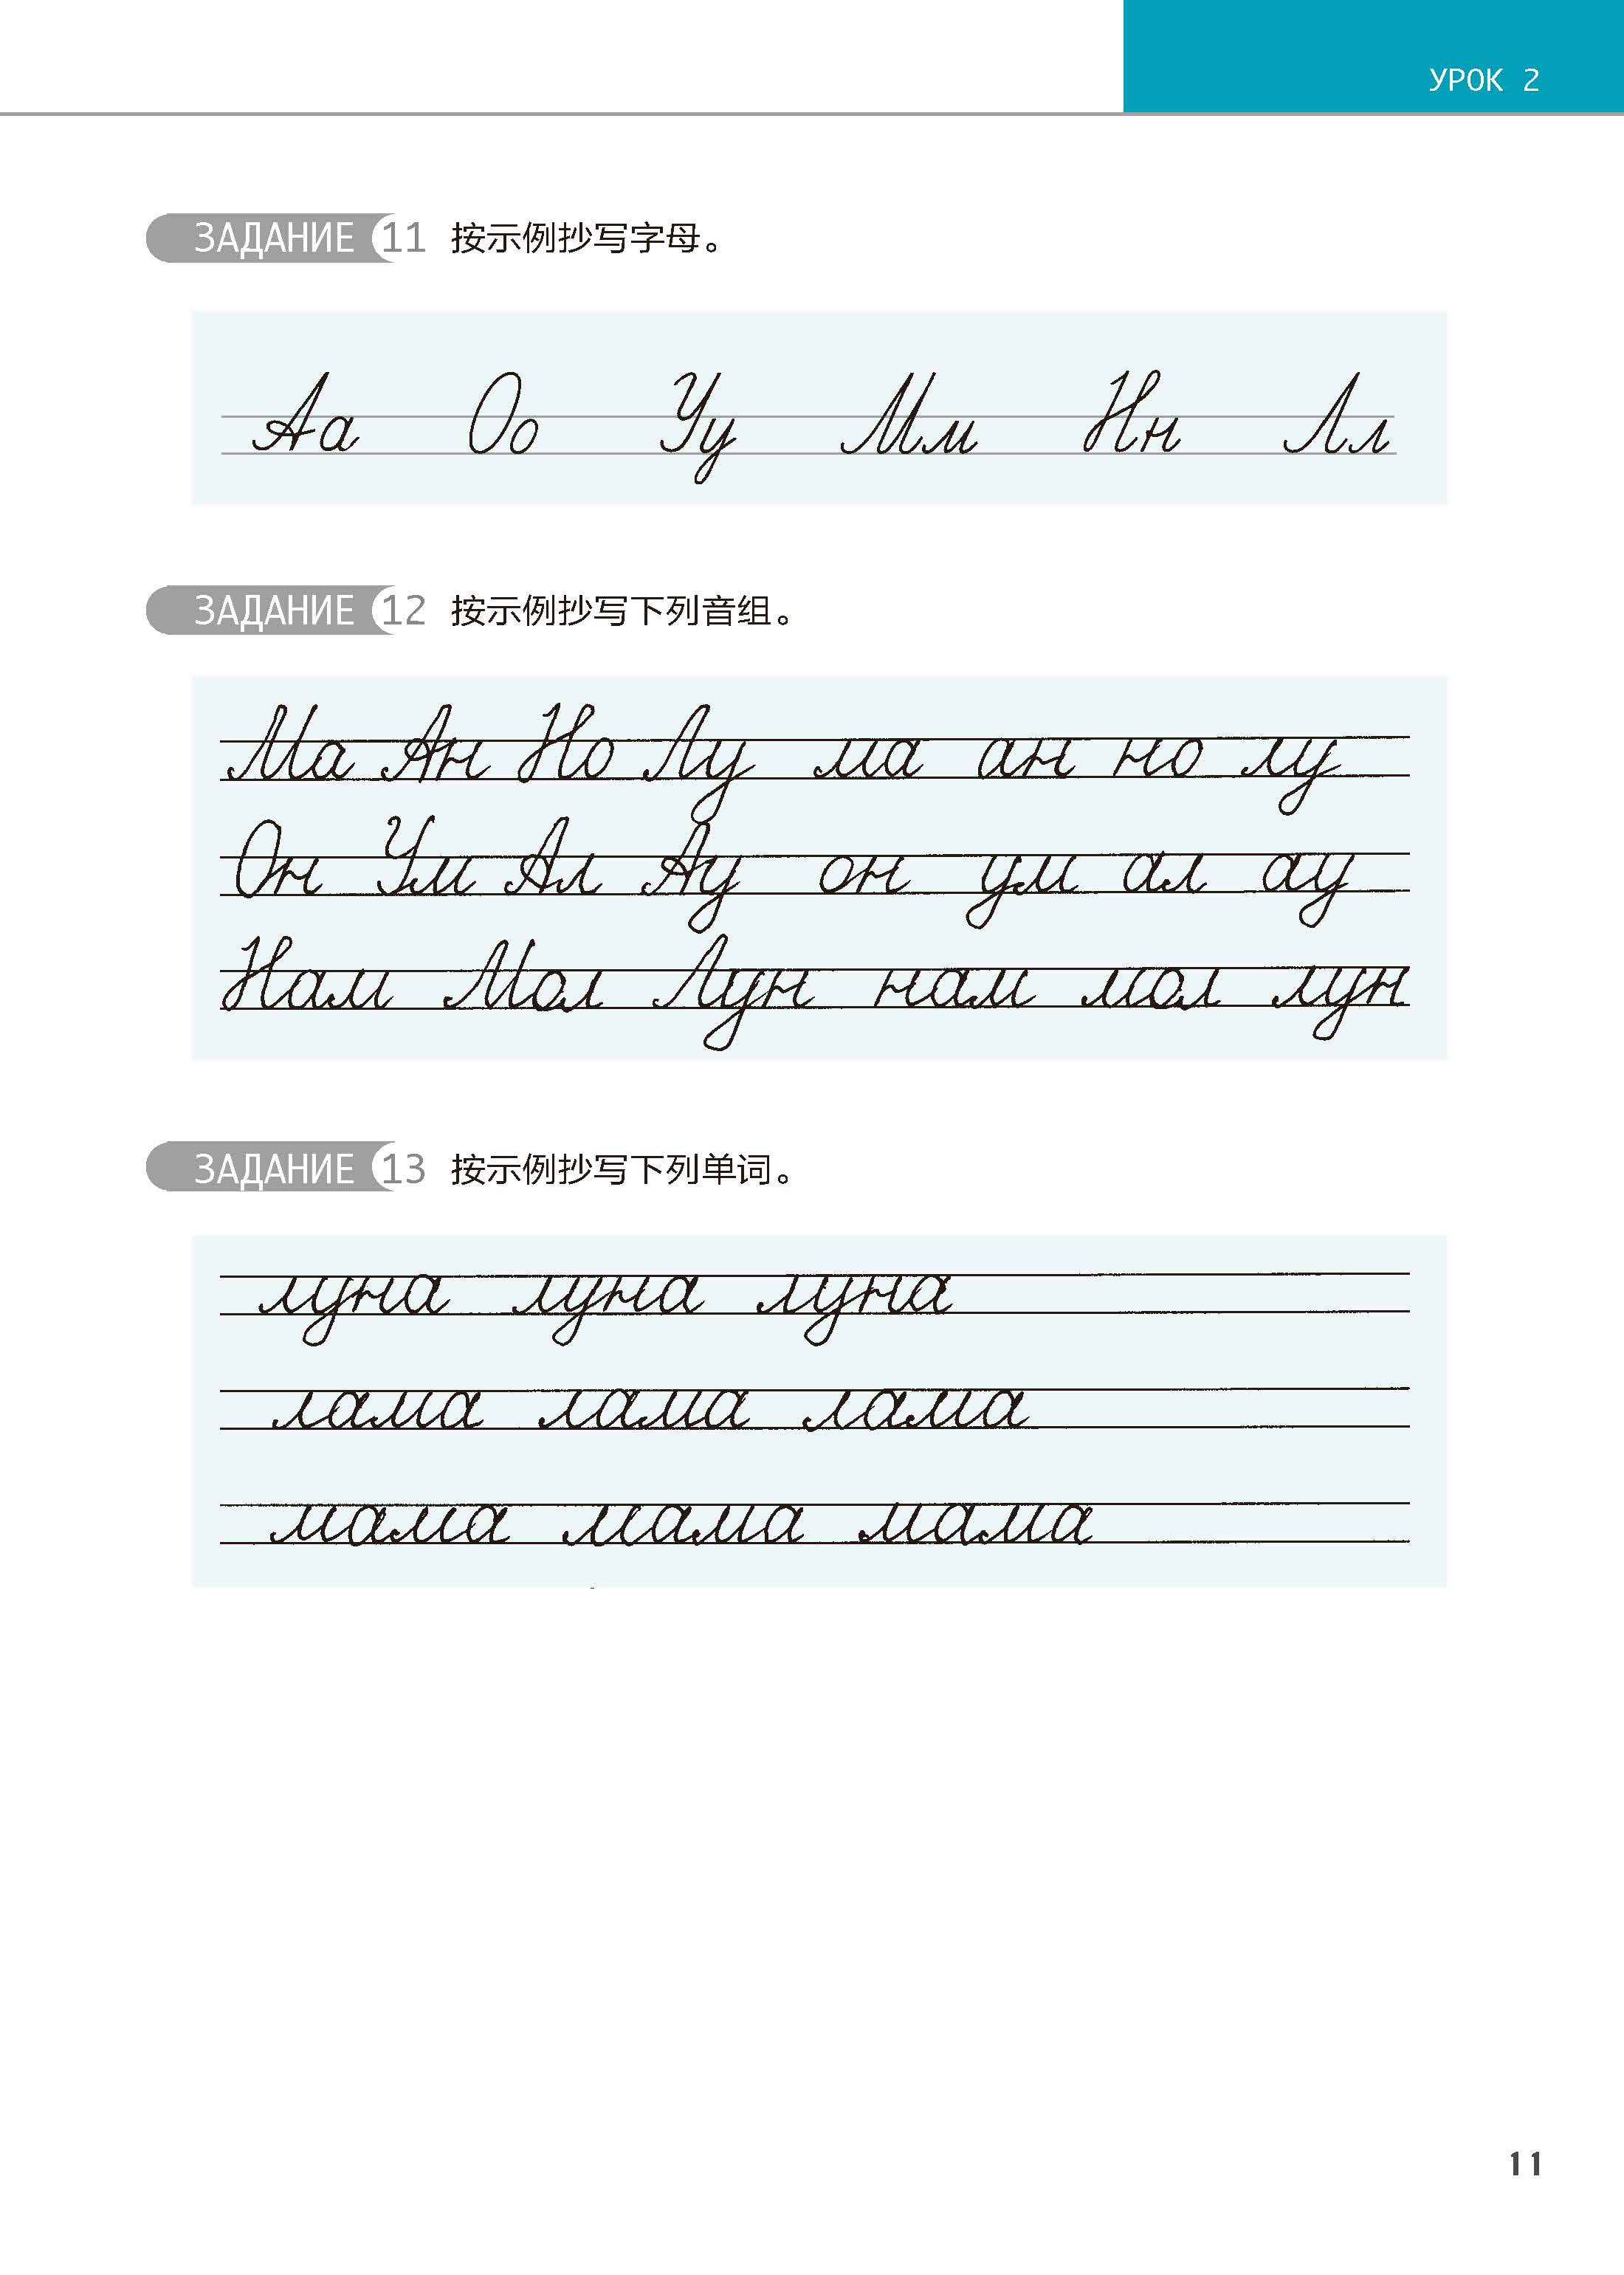 УРОК 2
ЗАДАНИЕ 11 按示例抄写字母。
Аа Оо Уу Мм Нн Лл
ЗАДАНИЕ 12 按示例抄写下列音组。
Ма Ан Но Лу ма ан но лу
Он Ум Ал Ау он ум ал ау
Нам Мол Лун нам мол лун
ЗАДАНИЕ 13 按示例抄写下列单词。
луна луна луна
лама лама лама
мама мама мама
11